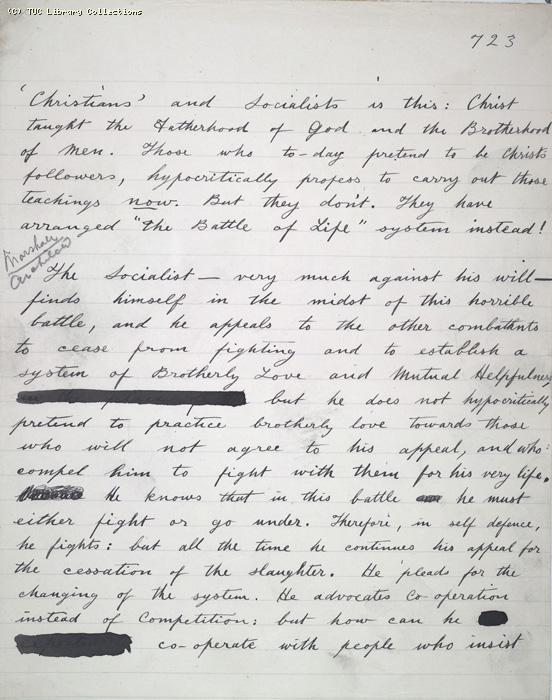 (C) TUC Library Collections
723
'Christians' and Socialists is this: Christ
taught the Fatherhood of God and the Brotherhood
of Men. Those who to-day pretend to be Christs
followers, hypocritically profess to carry out those
teachings now. But they don't. They have
arranged "the Battle of Life" system instead!
Marshall
The Socialist — very much against his will —
finds himself in the midst of this horrible
battle, and he appeals to the other combatants
to cease from fighting and to establish a
system of Brotherly Love and Mutual Helpfulness
but he does not hypocritically
pretend to practice brotherly love towards those
who will not agree to his appeal, and who
compel him to fight with them for his very life.
He knows that in this battle he must
either fight or go under. Therefore, in self defence,
he fights: but all the time he continues his appeal for
the cessation of the slaughter. He pleads for the
changing of the system. He advocates Co-operation
instead of Competition: but how can he
co-operate with people who insist